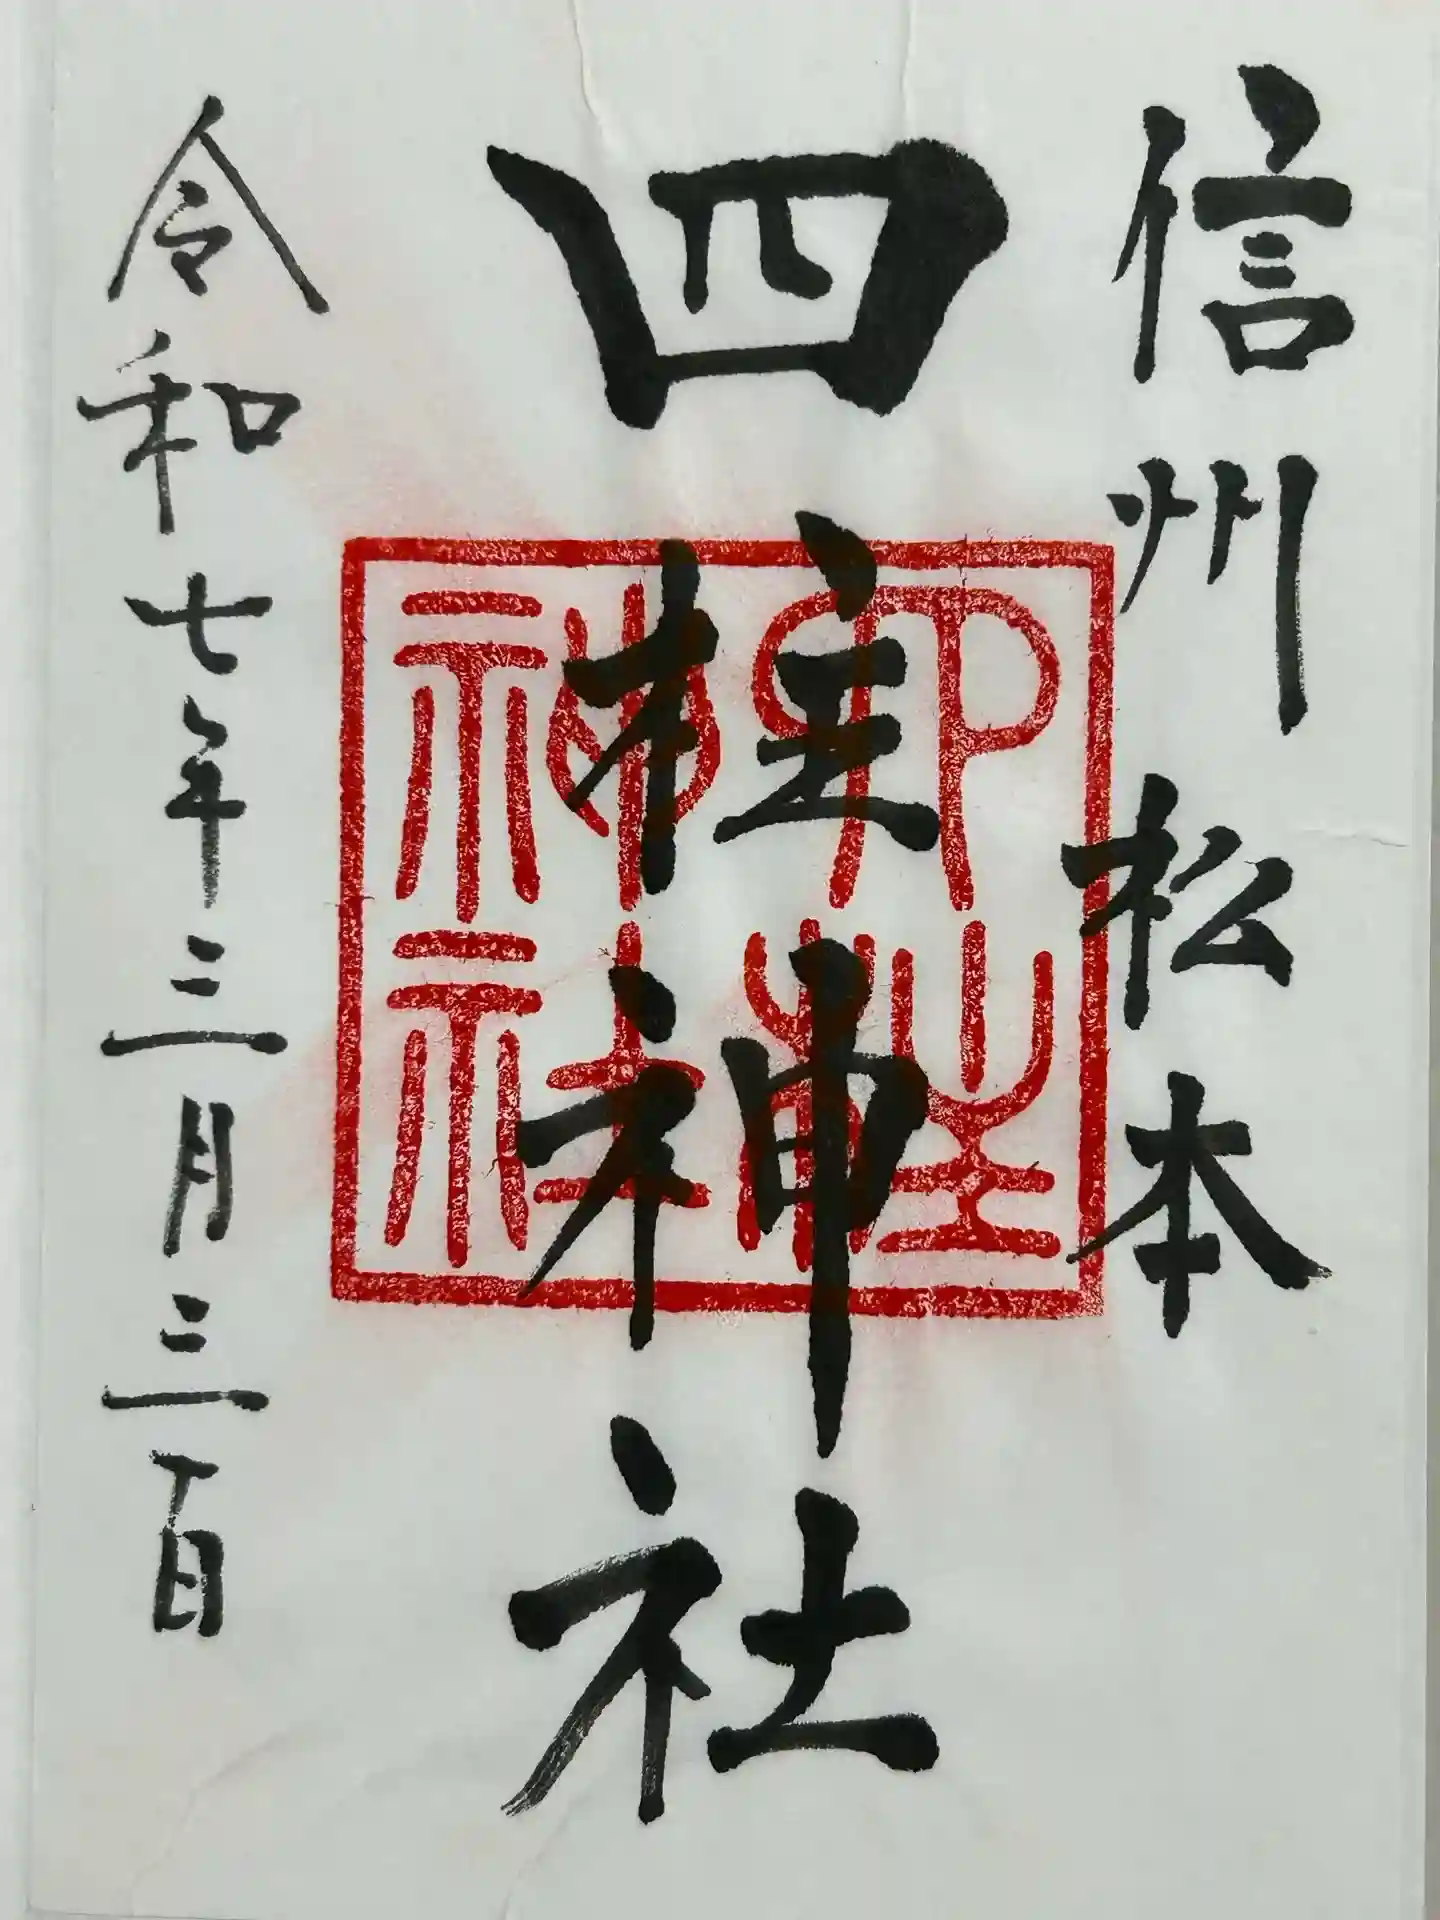 信州松本
四柱神社
四柱
神社
令和七年三月三一日